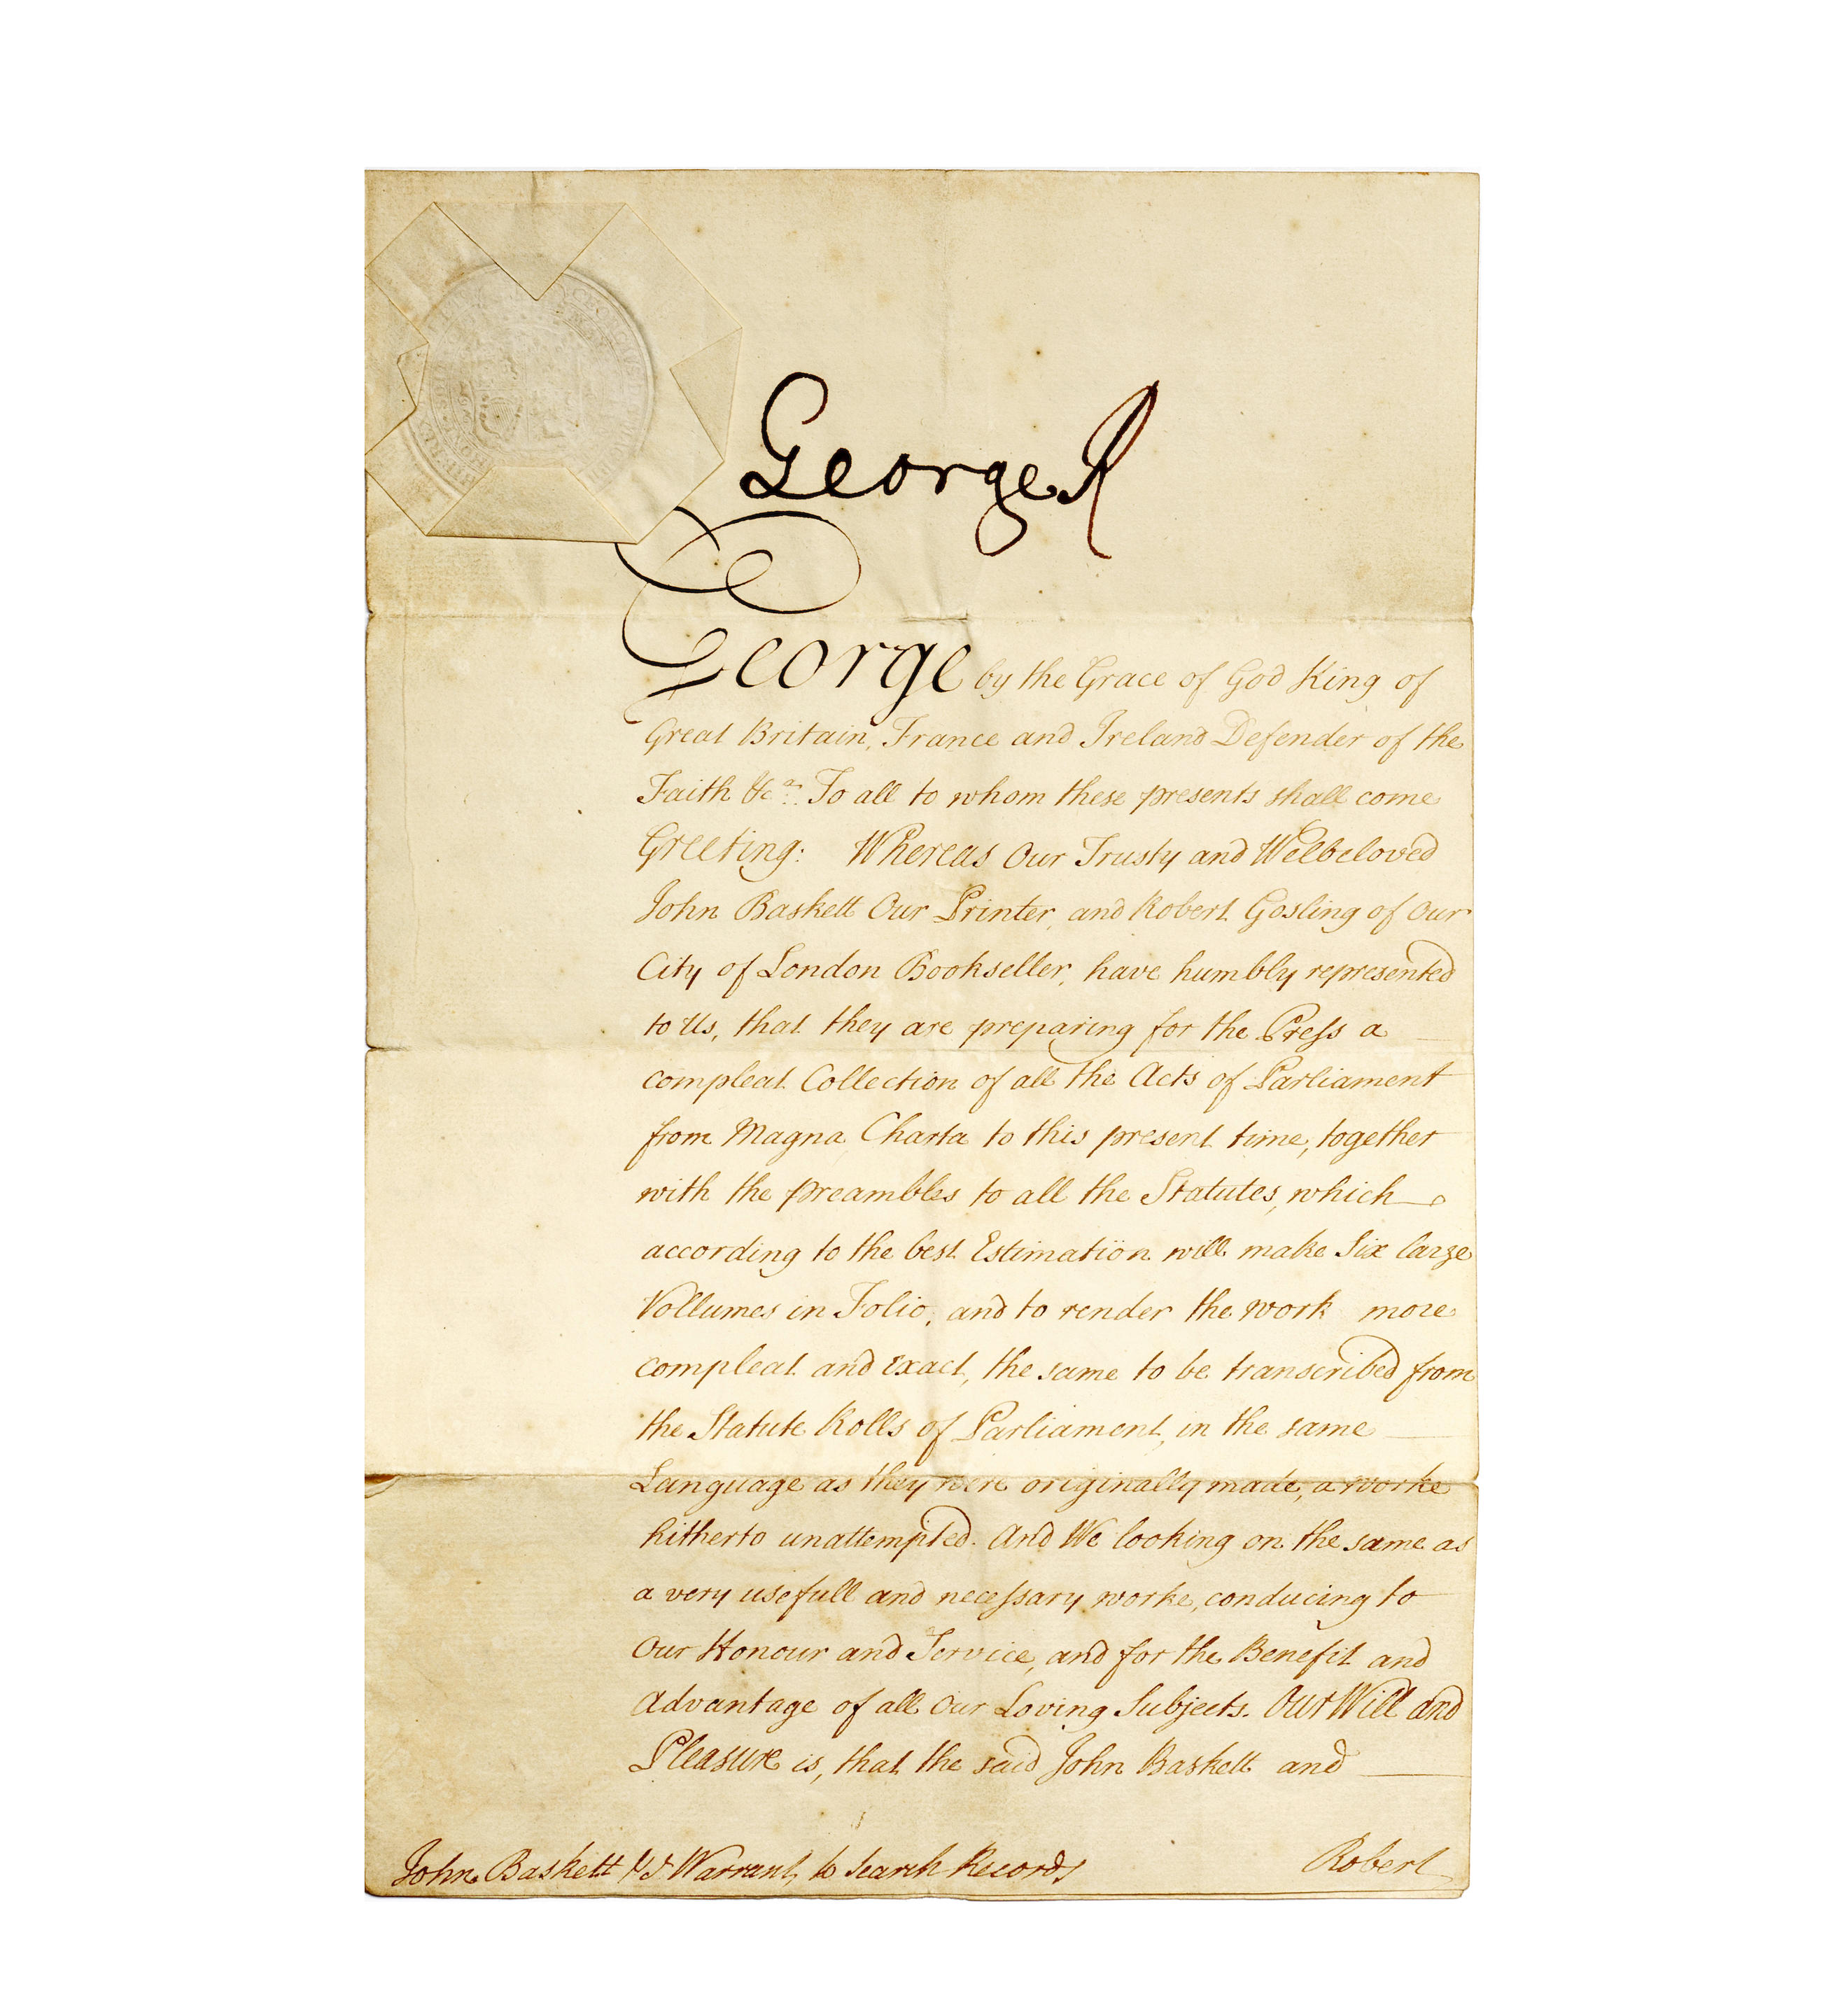 George R
George by the Grace of God King of
Great Britain, France and Ireland Defender of the
Faith &ca. To all to whom these presents shall come
Greeting: Whereas Our Trusty and Welbeloved
John Baskett Our Printer, and Robert Gosling of Our
City of London Bookseller, have humbly represented
to Us, that they are preparing for the Press a
compleat Collection of all the Acts of Parliament
from Magna Charta to this present time, together
with the preambles to all the Statutes, which
according to the best Estimation will make Six large
Vollumes in Folio, and to render the work more
compleat and exact, the same to be transcribed from
the Statute Rolls of Parliament, in the same
Language as they were originally made, a worke
hitherto unattempted. And We looking on the same as
a very usefull and necessary worke, conducing to
Our Honour and Service, and for the Benefit and
Advantage of all Our Loving Subjects. Our Will and
Pleasure is, that the said John Baskett and
Robert
John Baskett Warrant, to Search Records